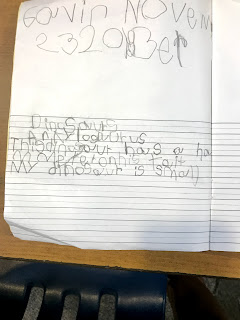 Gavin NOVEM
23 20 Ber
Dinosaurs
Ankylodurus
This dinosaur has a ha
on his tail
My dinosaur is small